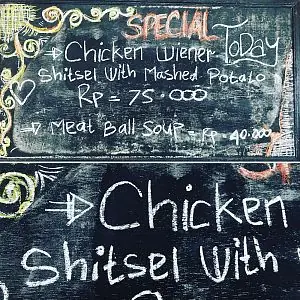 SPECIAL
TODAY
Chicken Wiener
Shitsel With Mashed Potato
Rp = 75.000
Meat Ball Soup = Rp. 40.000
Chicken
Shitsel With